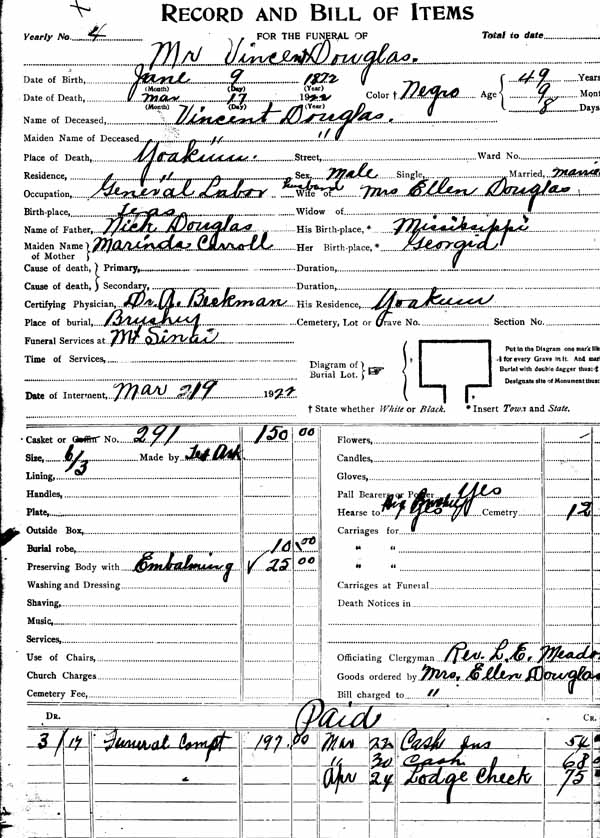 RECORD AND BILL OF ITEMS
Yearly No. 4 FOR THE FUNERAL OF Total to date
Mr Vincent Douglas.
Date of Birth, June 9 1872 49 Years
(Month) (Day) (Year)
Date of Death, Mar 17 1922 Color † Negro Age 9 Mont
(Month) (Day) (Year) 8 Days
Name of Deceased, Vincent Douglas.
Maiden Name of Deceased " "
Place of Death, Yoakum. Street, Ward No.
Residence, " Sex, Male Single, Married,
Occupation, General Labor husband Wife of Mrs Ellen Douglas
Birth-place, Texas Widow of
Name of Father, Nick Douglas His Birth-place,* Missisippi
Maiden Name of Mother Marinda Carroll Her Birth-place,* Georgia
Cause of death, Primary, Duration,
Cause of death at Secondary, Duration,
Certifying Physician, Dr. A. Beckman His Residence, Yoakum
Place of burial, Brushy Cemetery, Lot or Grave No. Section No.
Funeral Services at Mt Sinai
Time of Services,
Diagram of Burial Lot.
Put in the Diagram one mark
for every Grave in it. And mark
Burial with double dagger thus
Designate site of Monument thus
Date of Interment, Mar 19 1922
† State whether White or Black. * Insert Town and State.
Casket or Coffin No. 291 150 00 Flowers,
Size, 6/3 Made by Tex Ark Candles,
Lining, Gloves,
Handles, Pall Bearers or Porter Yes
Plate, Hearse to Yes Cemetry 12
Outside Box, Carriages for
Burial robe, 10 00 " "
Preserving Body with Embalming √ 25 00 " "
Washing and Dressing Carriages at Funeral
Shaving, Death Notices in
Music,
Services,
Use of Chairs, Officiating Clergyman Rev. L. E. Meado
Church Charges Goods ordered by Mrs. Ellen Douglas
Cemetery Fee, Bill charged to "
DR. Paid CR.
3/17 Funeral Compt 197.00 Mar 22 Cash Ins 54
" 30 Cash 68
" Apr 24 Lodge Check 75